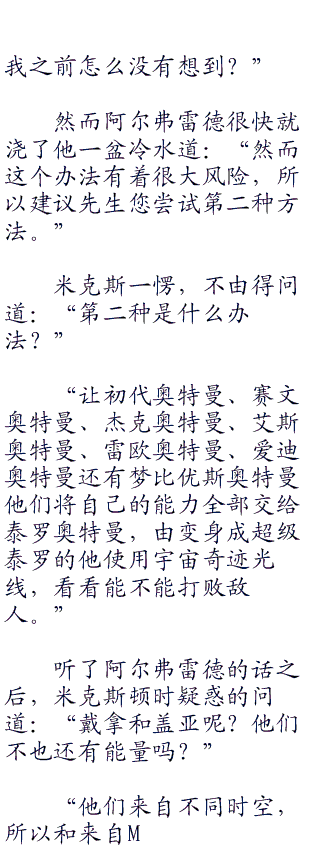 我之前怎么没有想到？”
然而阿尔弗雷德很快就
浇了他一盆冷水道：“然而
这个办法有着很大风险，所
以建议先生您尝试第二种方
法。”
米克斯一愣，不由得问
道：“第二种是什么办
法？”
“让初代奥特曼、赛文
奥特曼、杰克奥特曼、艾斯
奥特曼、雷欧奥特曼、爱迪
奥特曼还有梦比优斯奥特曼
他们将自己的能力全部交给
泰罗奥特曼，由变身成超级
泰罗的他使用宇宙奇迹光
线，看看能不能打败敌
人。”
听了阿尔弗雷德的话之
后，米克斯顿时疑惑的问
道：“戴拿和盖亚呢？他们
不也还有能量吗？”
“他们来自不同时空，
所以和来自M